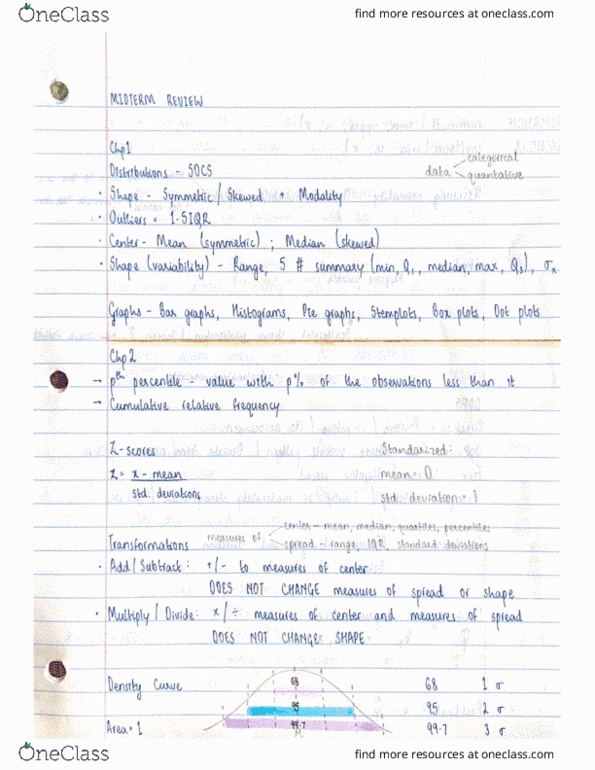 OneClass
find more resources at oneclass.com
MIDTERM REVIEW
Chp1
Distributions - SOCS
data
categorical
quantative
• Shape - Symmetric / Skewed + Modality
• Outliers = 1.5IQR
• Center - Mean (symmetric) ; Median (skewed)
• Shape (variability) - Range, 5 # summary (min, Q₁, median, max, Q₃), σₓ
Graphs - Bar graphs, Histograms, Pie graphs, Stemplots, Box plots, Dot plots
Chp 2
→ pᵗʰ percentile - value with p% of the observations less than it
→ Cumulative relative frequency
Z-scores Standarized:
z = x - mean mean = 0
std. deviations std. deviation = 1
Transformations measures of
center - mean, median, quartiles, percentiles
spread - range, IQR, standard deviations
• Add / Subtract: +/- to measures of center
DOES NOT CHANGE measures of spread or shape
• Multiply / Divide: ×/÷ measures of center and measures of spread
DOES NOT CHANGE SHAPE
Density Curve 68 68 1 σ
95 95 2 σ
Area = 1 99.7 99.7 3 σ
M
OneClass
find more resources at oneclass.com